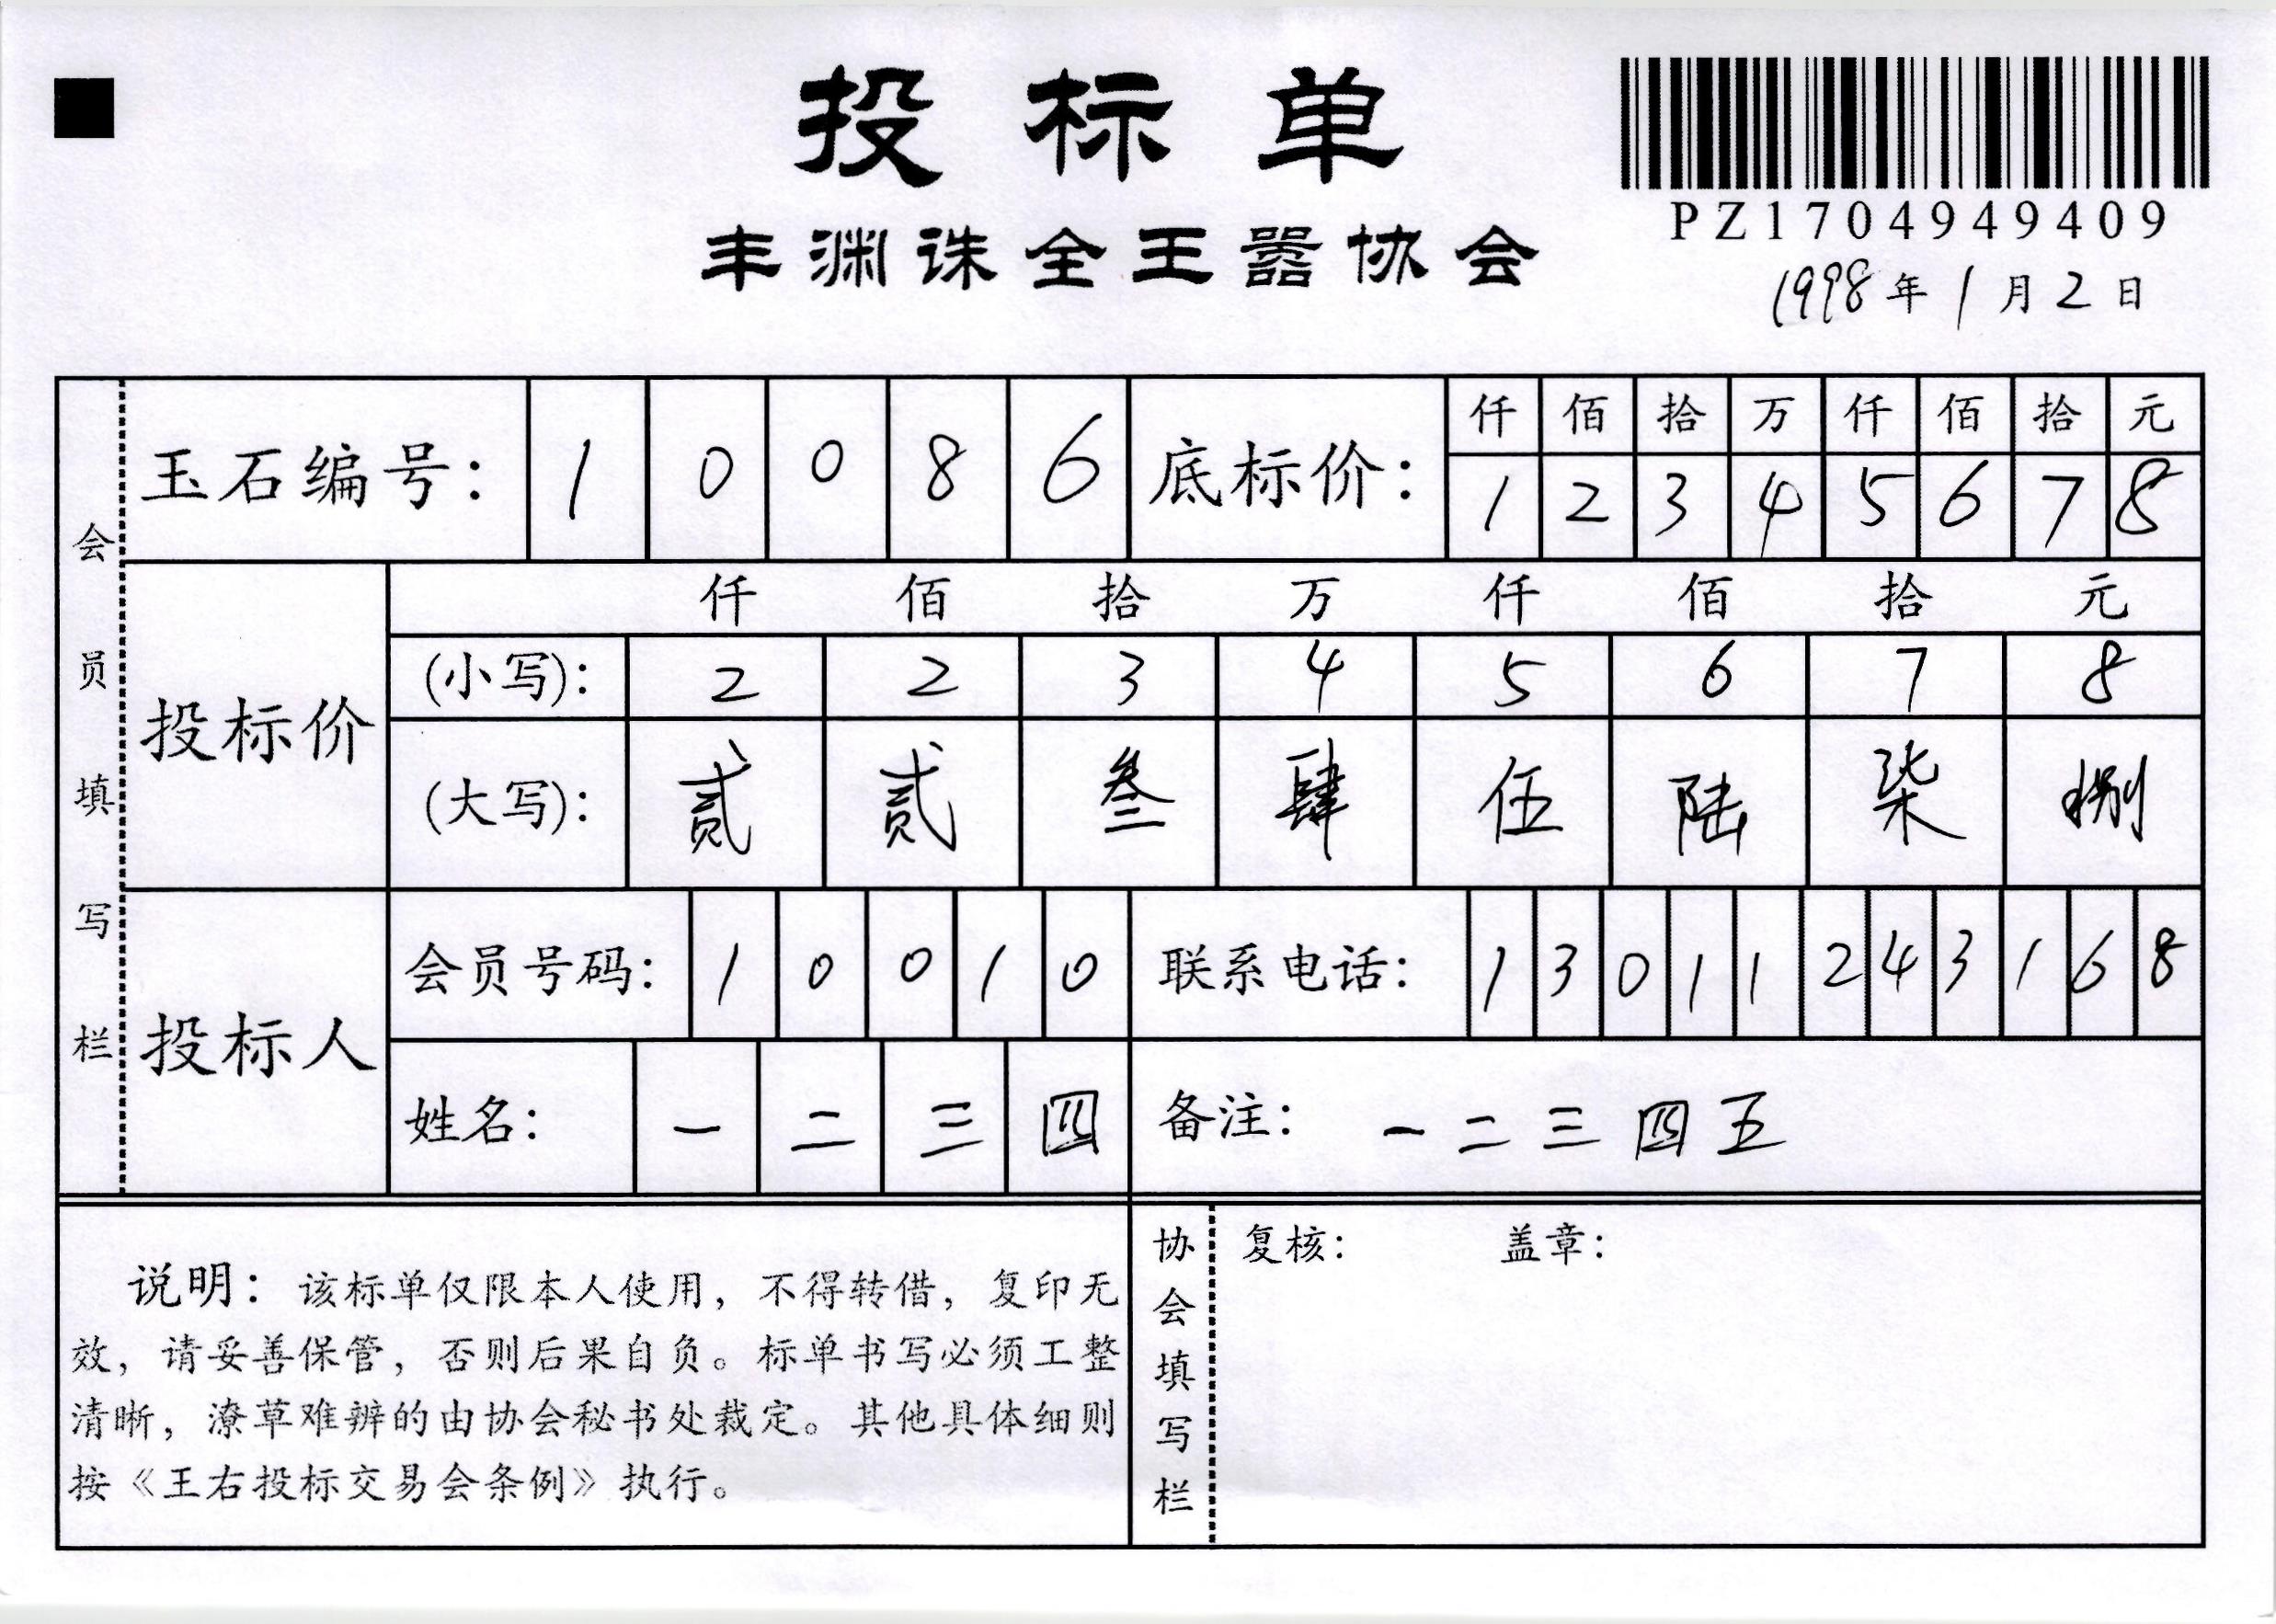 投标单
丰渊诛全王嚣协会
PZ1704949409
1998年1月2日
会员填写栏
玉石编号： 1 0 0 8 6
底标价： 仟 佰 拾 万 仟 佰 拾 元
1 2 3 4 5 6 7 8
投标价
仟 佰 拾 万 仟 佰 拾 元
(小写)： 2 2 3 4 5 6 7 8
(大写)： 贰 贰 叁 肆 伍 陆 柒 捌
投标人
会员号码： 1 0 0 1 0
联系电话： 1 3 0 1 1 2 4 3 1 6 8
姓名： 一 二 三 四
备注： 一二三四五
说明：该标单仅限本人使用，不得转借，复印无
效，请妥善保管，否则后果自负。标单书写必须工整
清晰，潦草难辨的由协会秘书处裁定。其他具体细则
按《王右投标交易会条例》执行。
协会填写栏
复核： 盖章：